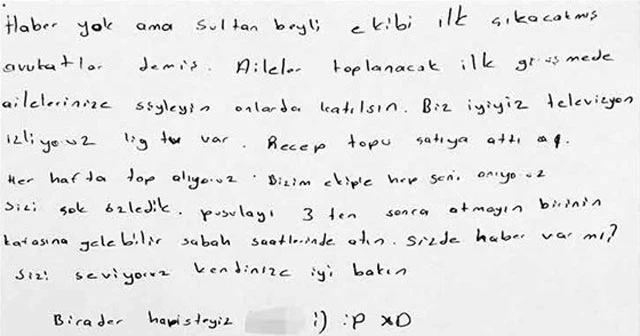 Haber yok ama Sultan beyli ekibi ilk çıkacakmış
avukatlar demiş. Aileler toplanacak ilk görüşmede
ailelerinize söyleyin onlarda katılsın. Biz iyiyiz televizyon
izliyoruz lig tv var. Recep topu satıya attı aq.
Her hafta top alıyoruz. Bizim ekiple hep seni anıyoruz
sizi çok özledik. pusulayı 3 ten sonra atmayın birinin
kafasına gelebilir sabah saatlerinde atın. sizde haber var mı?
sizi seviyoruz kendinize iyi bakın
Birader hapisteyiz :) :p xD